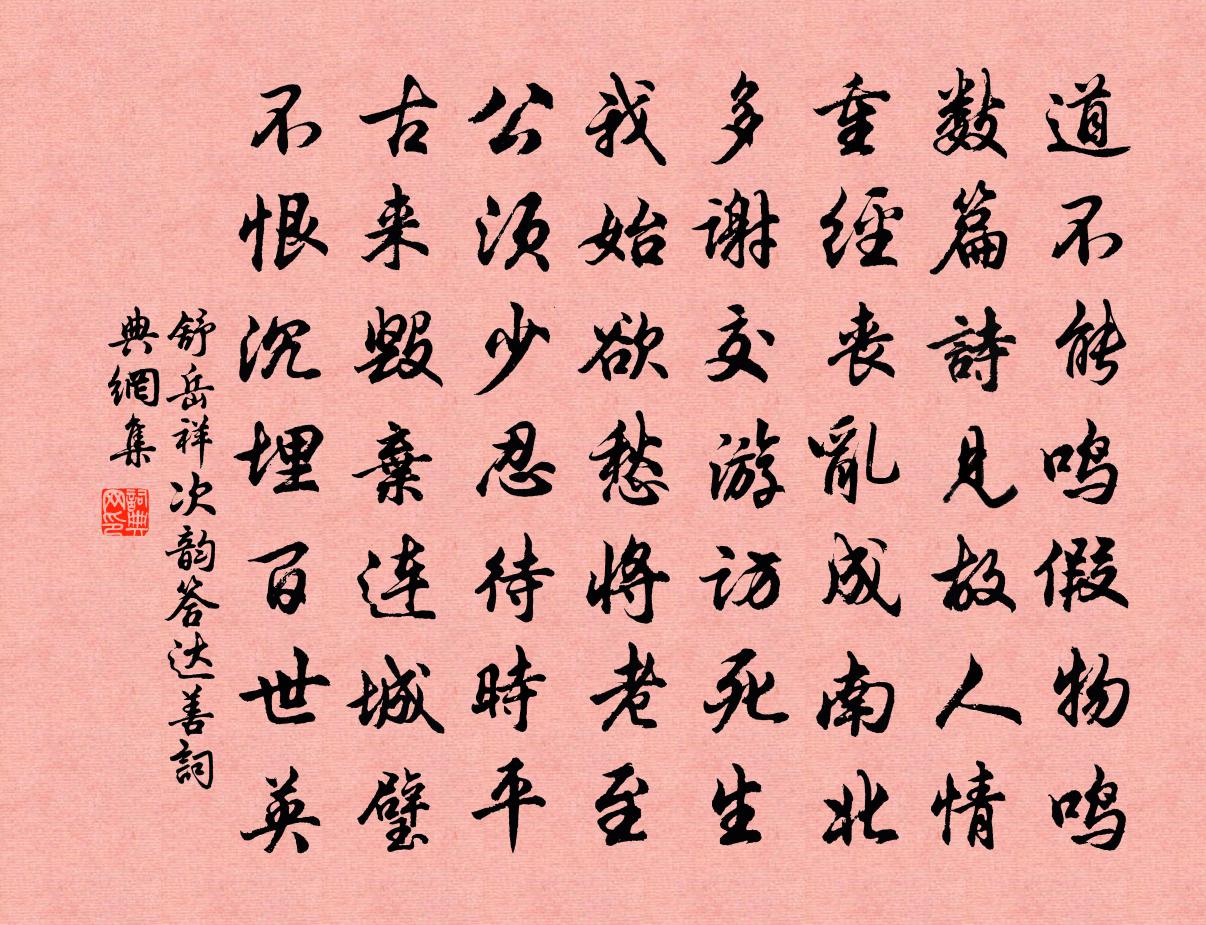 道不能鸣假物鸣
数篇詩見故人情
重經丧亂成南北
多谢交游访死生
我始欲愁將老至
公须少忍待時平
古来毁棄连城璧
不恨沉埋百世英
舒岳祥次韵答达善詞
典網集
詞典网印